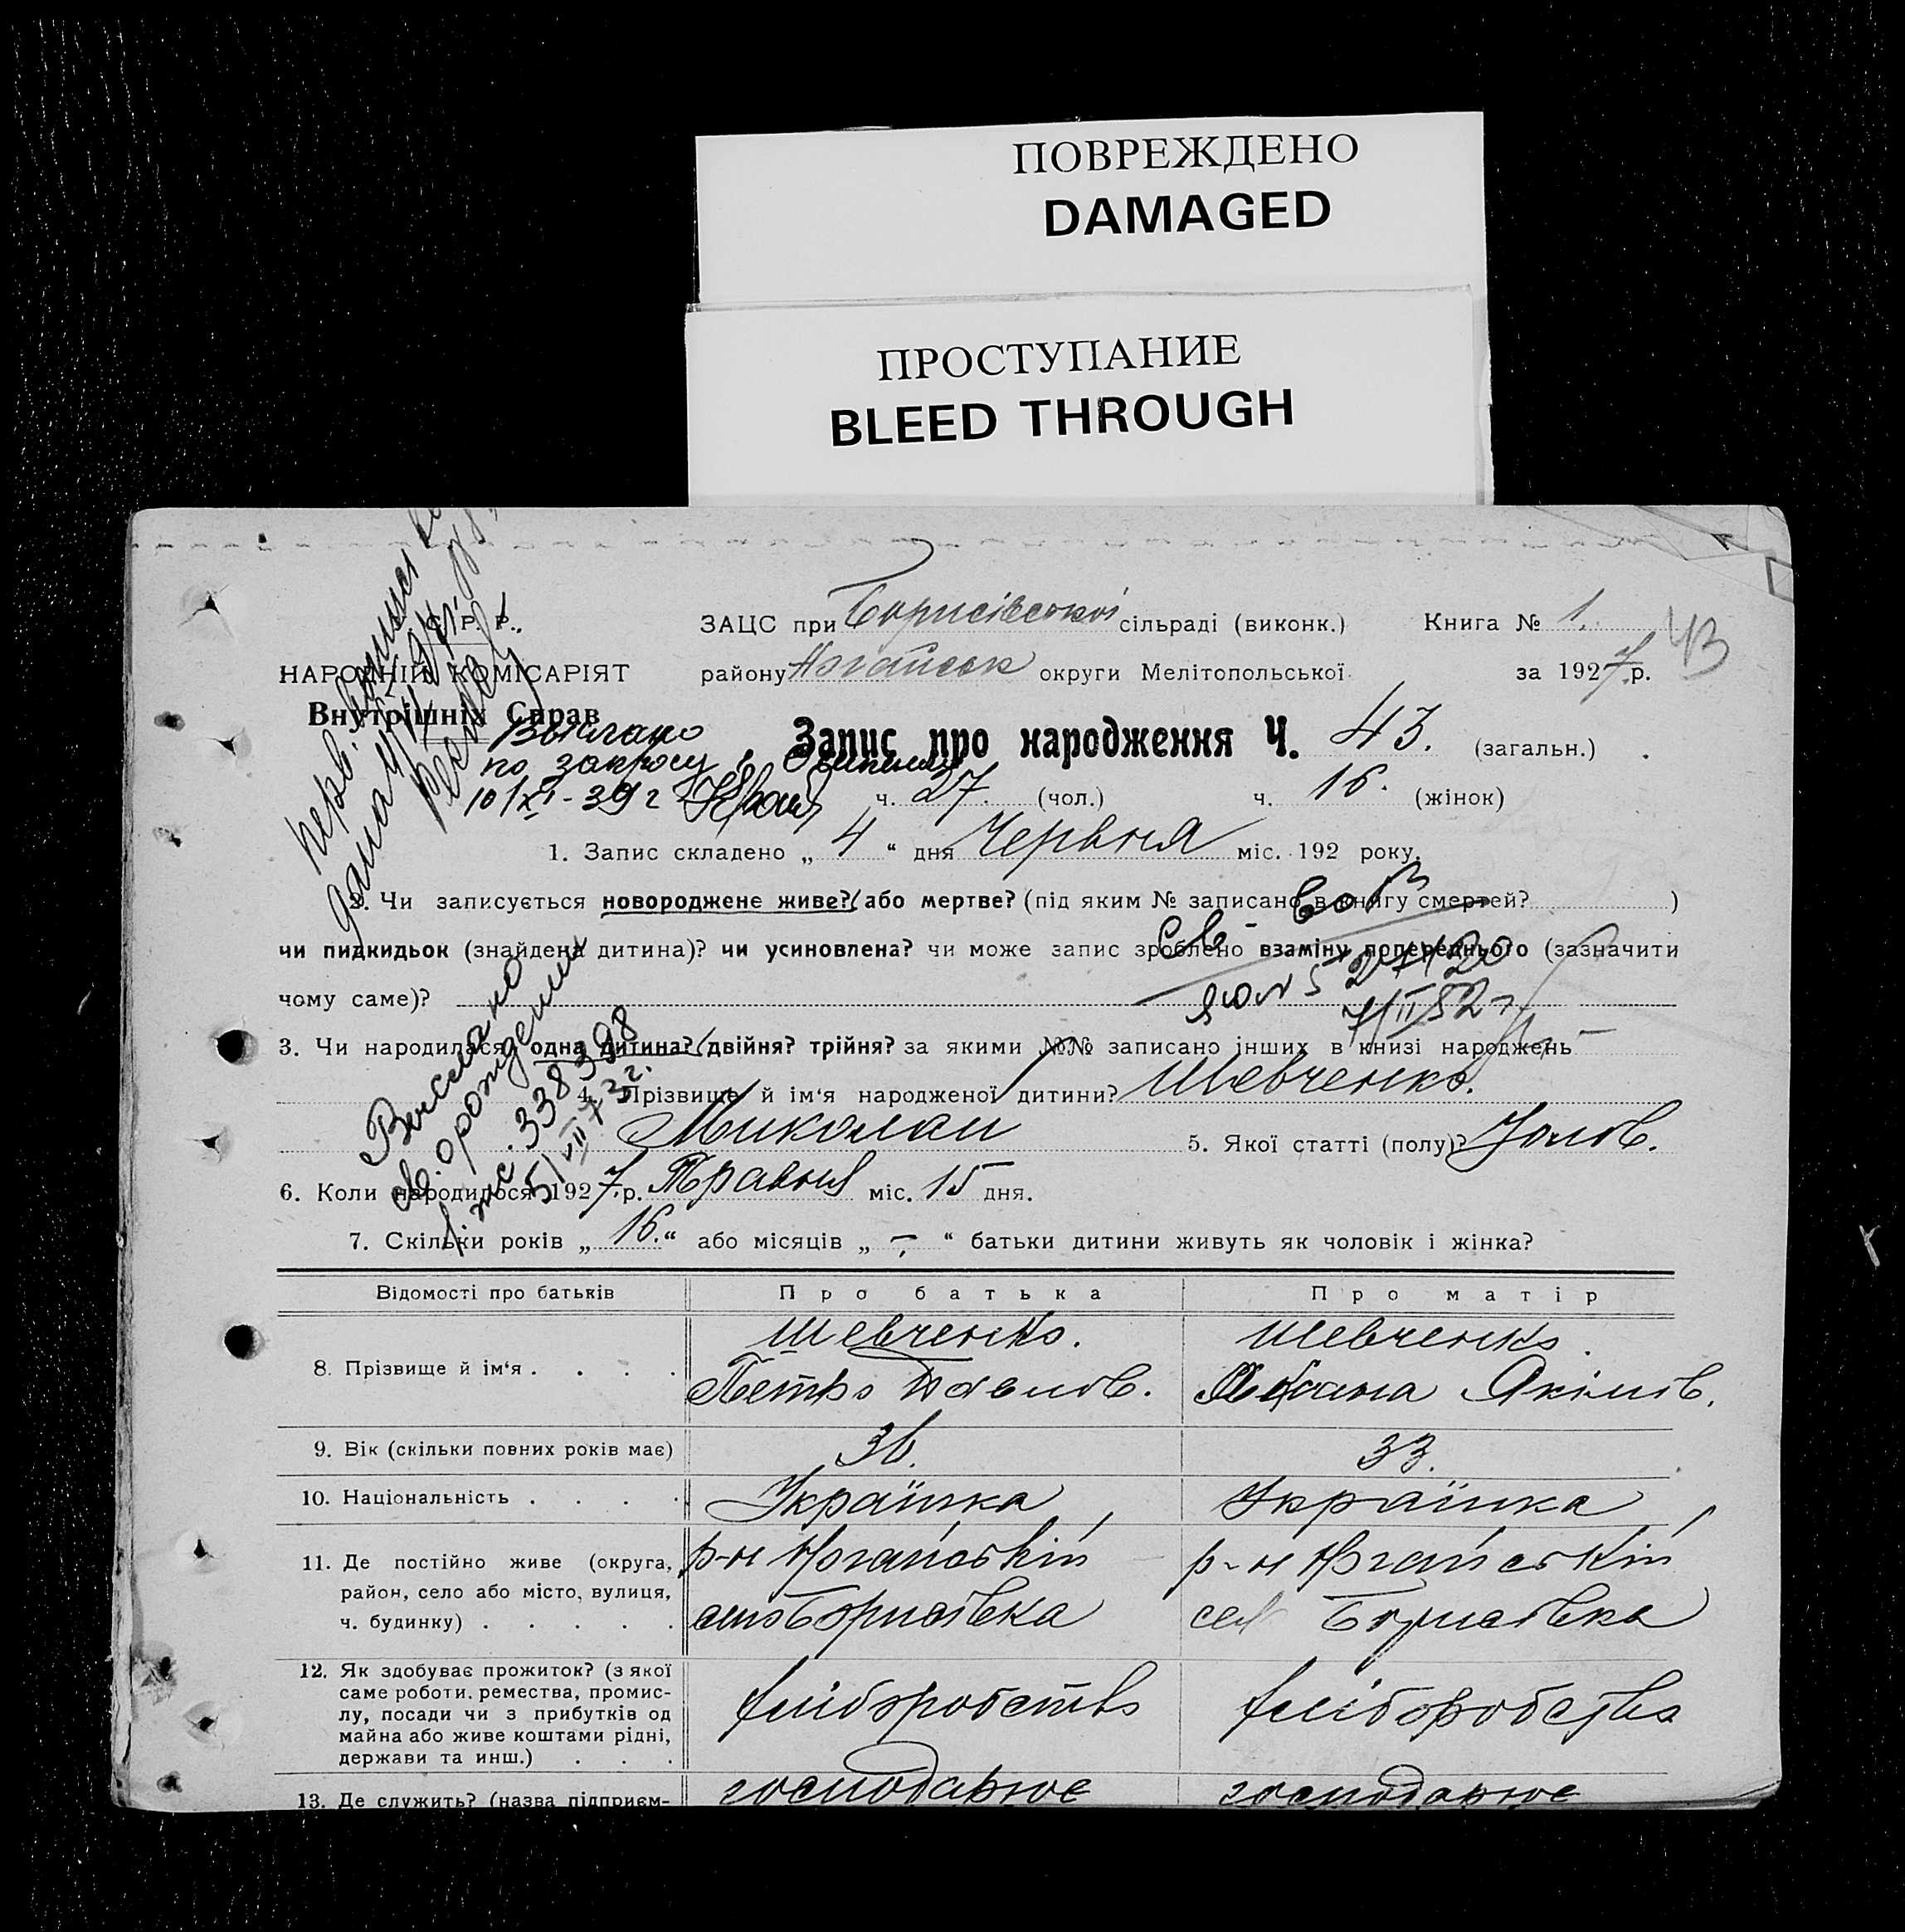 ПОВРЕЖДЕНО
DAMAGED
ПРОСТУПАНИЕ
BLEED THROUGH
С. Р. Р.,
ЗАЦС при Борисівської сільраді (виконк.) Книга № 1. 43
НАРОДНІЙ КОМІСАРІЯТ
району Ногайськ округи Мелітопольської за 1927 р.
Внутрішніх Справ
Выслано
по запросу
10/XI-39 г
Запис про народження Ч. 43. (загальн.)
ч. 27. (чол.) ч. 16. (жінок)
1. Запис складено „ 4 “ дня Червня міс. 192 року.
2. Чи записується новороджене живе? або мертве? (під яким № записано в книгу смертей? )
чи пидкидьок (знайдена дитина)? чи усиновлена? чи може запис зроблено взаміну попереднього (зазначити
чому саме)?
7/II 52 г
3. Чи народилася одна дитина? двійня? трійня? за якими №№ записано інших в книзі народжень
Выслано
св. о рождении
338398
5/VII 73 г.
4. Прізвище й ім‘я народженої дитини? Шевченко.
Миколай 5. Якої статті (полу)? Чолов.
6. Коли народилося 1927 р. Травня міс. 15 дня.
7. Скільки років „ 16. “ або місяців „ – “ батьки дитини живуть як чоловік і жінка?
Відомості про батьків Про батька Про матір
8. Прізвище й ім‘я . . . . Шевченко. Петро Павлов. Шевченко. Якімов.
9. Вік (скільки повних років має) 36. 33.
10. Національність . . . . Українка Українка
11. Де постійно живе (округа, р-н Ногайській р-н Ногайській
район, село або місто, вулиця,
ч. будинку) . . . . . село Борисівка сел Борисівка
12. Як здобуває прожиток? (з якої
саме роботи. ремества, промис-
лу, посади чи з прибутків од хліборобство хліборобство
майна або живе коштами рідні,
держави та инш.) . . .
13. Де служить? (назва підприєм- господарює господарює